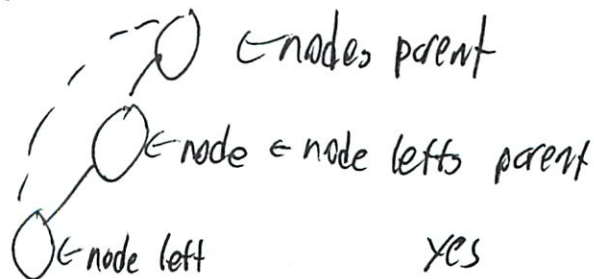 ← nodes parent
← node ← node lefts parent
← node left yes